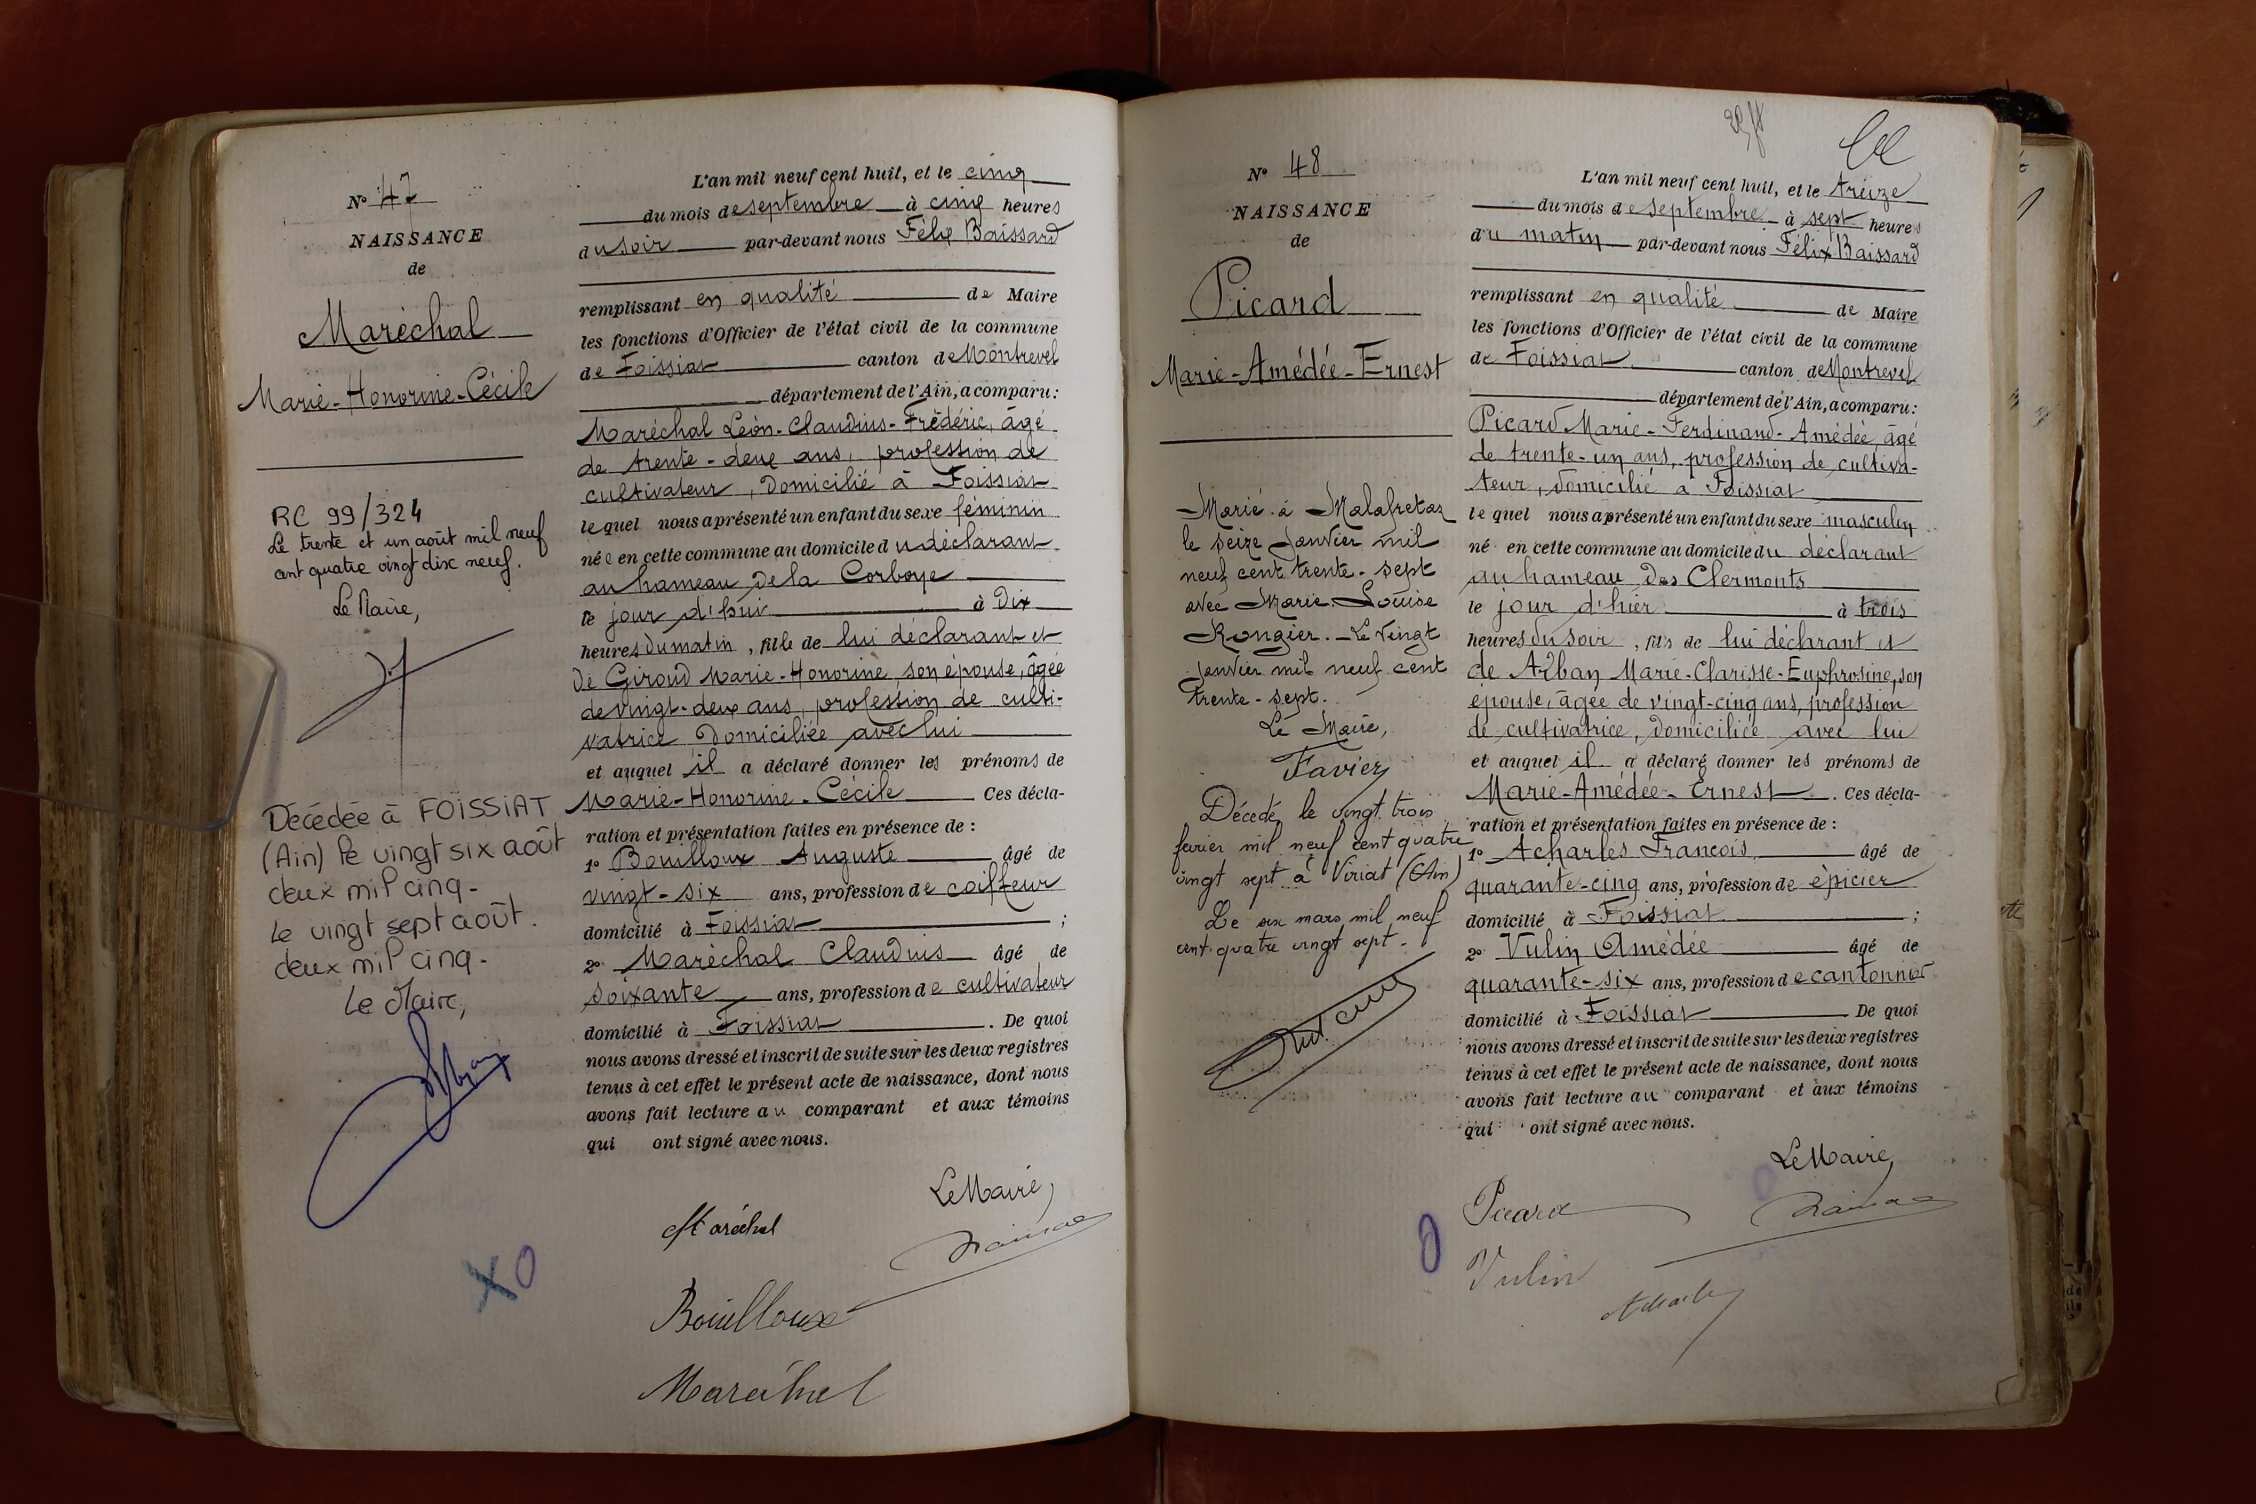 N° 47
NAISSANCE
de
Maréchal
Marie-Honorine-Cécile
RC 99/324
Le trente et un août mil neuf
cent quatre vingt dix neuf.
Le Maire,
Décédée à FOISSIAT
(Ain) le vingt six août
deux mil cinq-
Le vingt sept août.
deux mil cinq-
Le Maire,
XO
L'an mil neuf cent huit, et le cinq
du mois de septembre à cinq heures
du soir par-devant nous Félix Baissard
remplissant en qualité de Maire
les fonctions d'Officier de l'état civil de la commune
de Foissiat canton de Montrevel
département de l'Ain, a comparu:
Maréchal Léon-Claudius-Frédéric, âgé
de trente-deux ans, profession de
cultivateur, domicilié à Foissiat
le quel nous a présenté un enfant du sexe féminin
née en cette commune au domicile du déclarant
au hameau de la Corboye
le jour d'hui à dix
heures du matin, fille de lui déclarant et
de Giroud Marie-Honorine, son épouse, âgée
de vingt-deux ans, profession de culti-
vatrice domiciliée avec lui
et auquel il a déclaré donner les prénoms de
Marie-Honorine-Cécile Ces décla-
ration et présentation faites en présence de :
1° Bouilloux Auguste âgé de
vingt-six ans, profession de coiffeur
domicilié à Foissiat ;
2° Maréchal Claudius âgé de
soixante ans, profession de cultivateur
domicilié à Foissiat. De quoi
nous avons dressé et inscrit de suite sur les deux registres
tenus à cet effet le présent acte de naissance, dont nous
avons fait lecture au comparant et aux témoins
qui ont signé avec nous.
Le Maire,
Maréchal
Bouilloux
Maréchal
N° 48
NAISSANCE
de
Picard
Marie-Amédée-Ernest
Marié à Malafretaz
le seize janvier mil
neuf cent trente-sept
avec Marie Louise
Rongier. - Le vingt
janvier mil neuf cent
trente-sept.
Le Maire,
Favier
Décédé le vingt trois
fevrier mil neuf cent quatre
vingt sept à Viriat (Ain)
Le six mars mil neuf
cent quatre vingt sept-
L'an mil neuf cent huit, et le treize
du mois de septembre à sept heures
du matin par-devant nous Félix Baissard
remplissant en qualité de Maire
les fonctions d'Officier de l'état civil de la commune
de Foissiat canton de Montrevel
département de l'Ain, a comparu:
Picard Marie-Ferdinand-Amédée, âgé
de trente-un ans, profession de cultiva-
teur, domicilié à Foissiat
le quel nous a présenté un enfant du sexe masculin
né en cette commune au domicile du déclarant
au hameau des Clermonts
le jour d'hier à trois
heures du soir, fils de lui déclarant et
de Arban Marie-Clarisse-Euphrosine, son
épouse, âgée de vingt-cinq ans, profession
de cultivatrice, domiciliée avec lui
et auquel il a déclaré donner les prénoms de
Marie-Amédée-Ernest. Ces décla-
ration et présentation faites en présence de :
1° Acharles François âgé de
quarante-cinq ans, profession de épicier
domicilié à Foissiat ;
2° Vulin Amédée âgé de
quarante-six ans, profession de cantonnier
domicilié à Foissiat De quoi
nous avons dressé et inscrit de suite sur les deux registres
tenus à cet effet le présent acte de naissance, dont nous
avons fait lecture au comparant et aux témoins
qui ont signé avec nous.
Le Maire,
Picard
Vulin